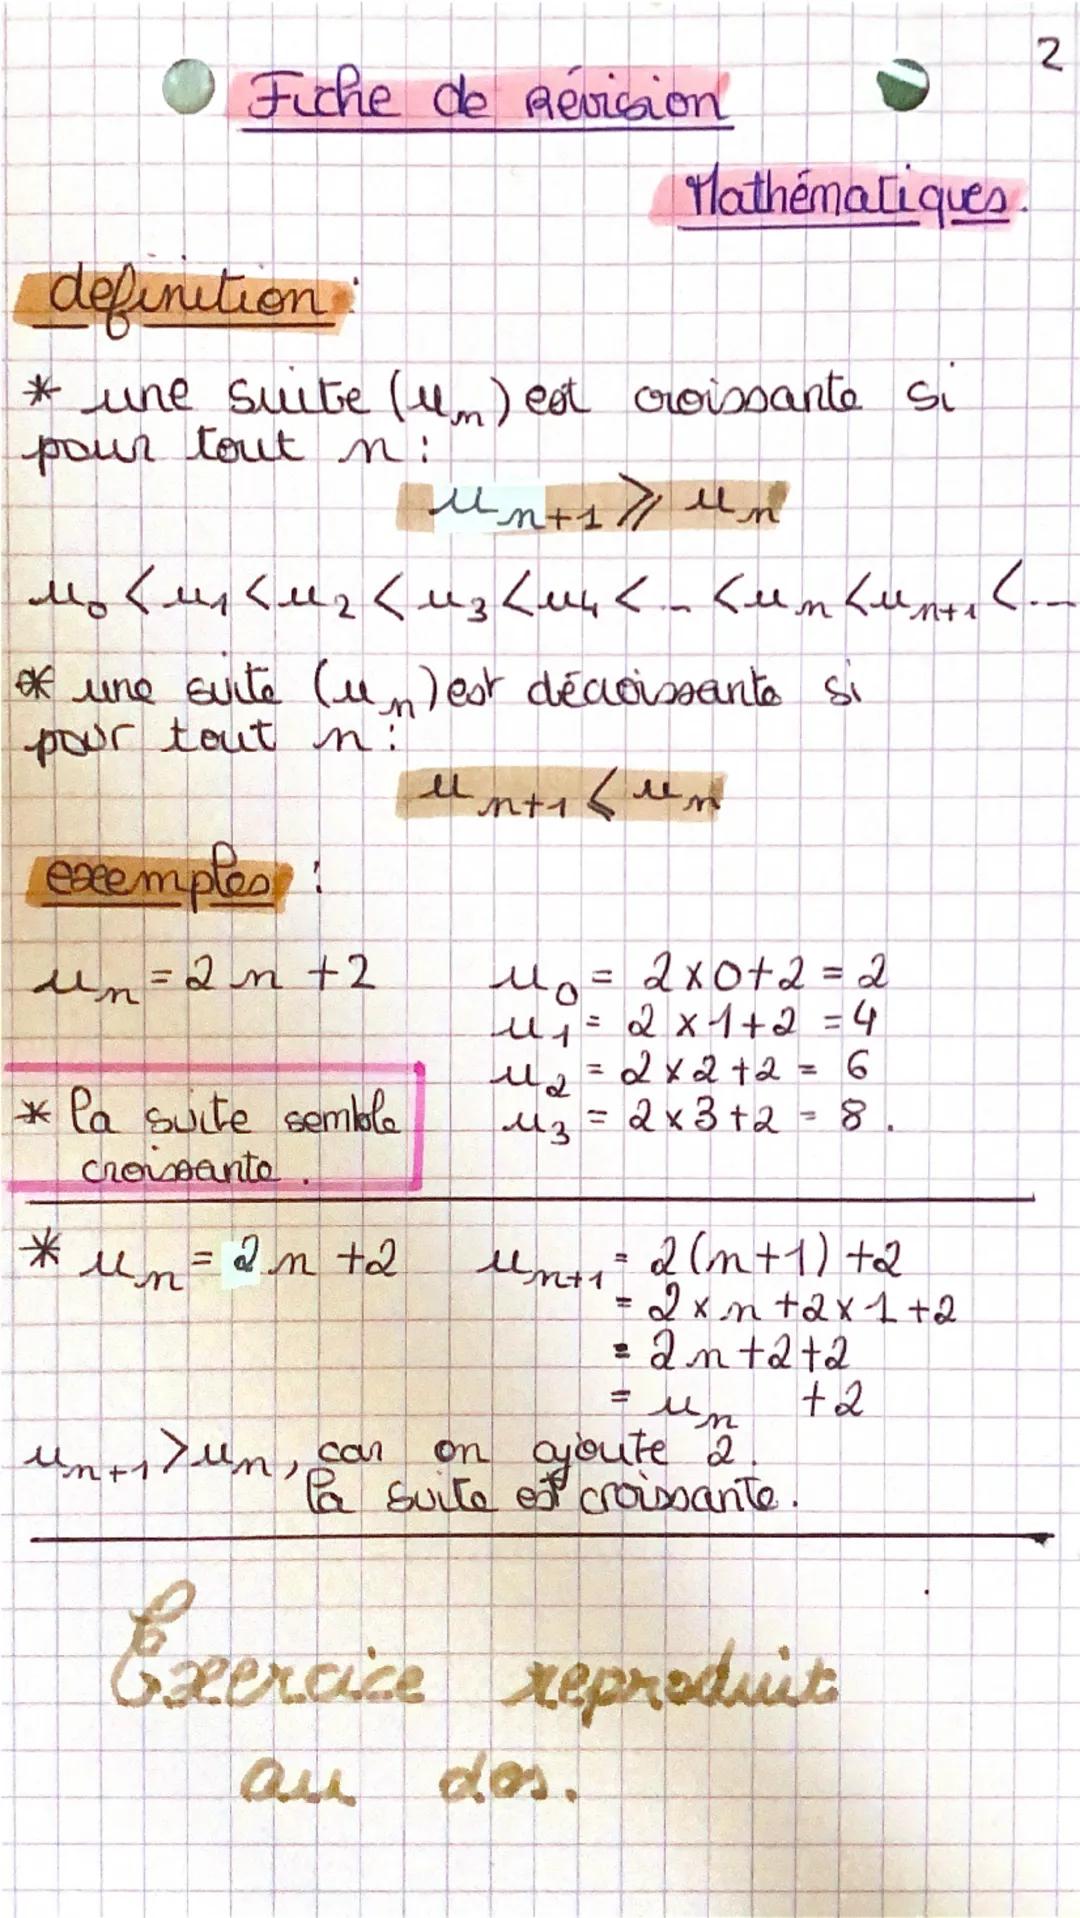 2
Fiche de Révision
Mathématiques.
definition :
* une suite (uₙ) est croissante si
pour tout n :
uₙ₊₁ ⩾ uₙ
u₀ < u₁ < u₂ < u₃ < u₄ < ... < uₙ < uₙ₊₁ < ...
* une suite (uₙ) est décroissante si
pour tout n :
uₙ₊₁ ⩽ uₙ
exemples :
uₙ = 2n + 2
u₀ = 2×0+2 = 2
u₁ = 2×1+2 = 4
u₂ = 2×2+2 = 6
u₃ = 2×3+2 = 8.
* la suite semble
croissante.
* uₙ = 2n + 2
uₙ₊₁ = 2(n+1) + 2
= 2×n + 2×1 + 2
= 2n + 2 + 2
= uₙ + 2
uₙ₊₁ > uₙ, car on ajoute 2.
la suite est croissante.
Exercice reproduit
au dos.